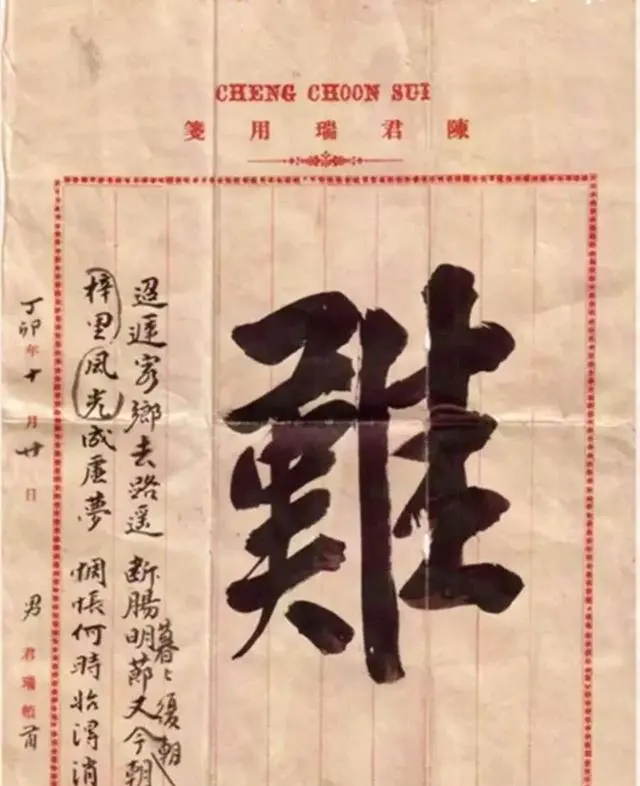 CHENG CHOON SUI
陳君瑞用箋
難
迢遞客鄉去路遥 断腸明節又今朝
暮〻復朝
梓里風光成虛夢 惆悵何時始得消
丁卯年十月廿日 男 君瑞